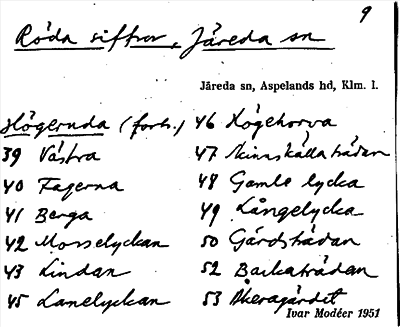 9
Röda siffror, Järeda sn
Järeda sn, Aspelands hd, Klm. l.
Högeruda (forts.)
39 Västra
40 Fagerna
41 Berga
42 Mosselyckan
43 Lindan
45 Lanelyckan
46 Högehorva
47 Skinnskällaträdan
48 Gamle lycka
49 Långelycka
50 Gärdsträdan
52 Backaträdan
53 Åkeragärdet
Ivar Modéer 1951